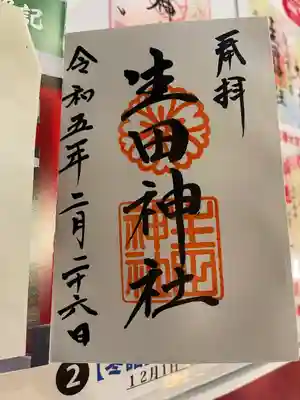 奉拝
生田神社
生田神社
令和五年二月二十六日
記
❷
12月1日